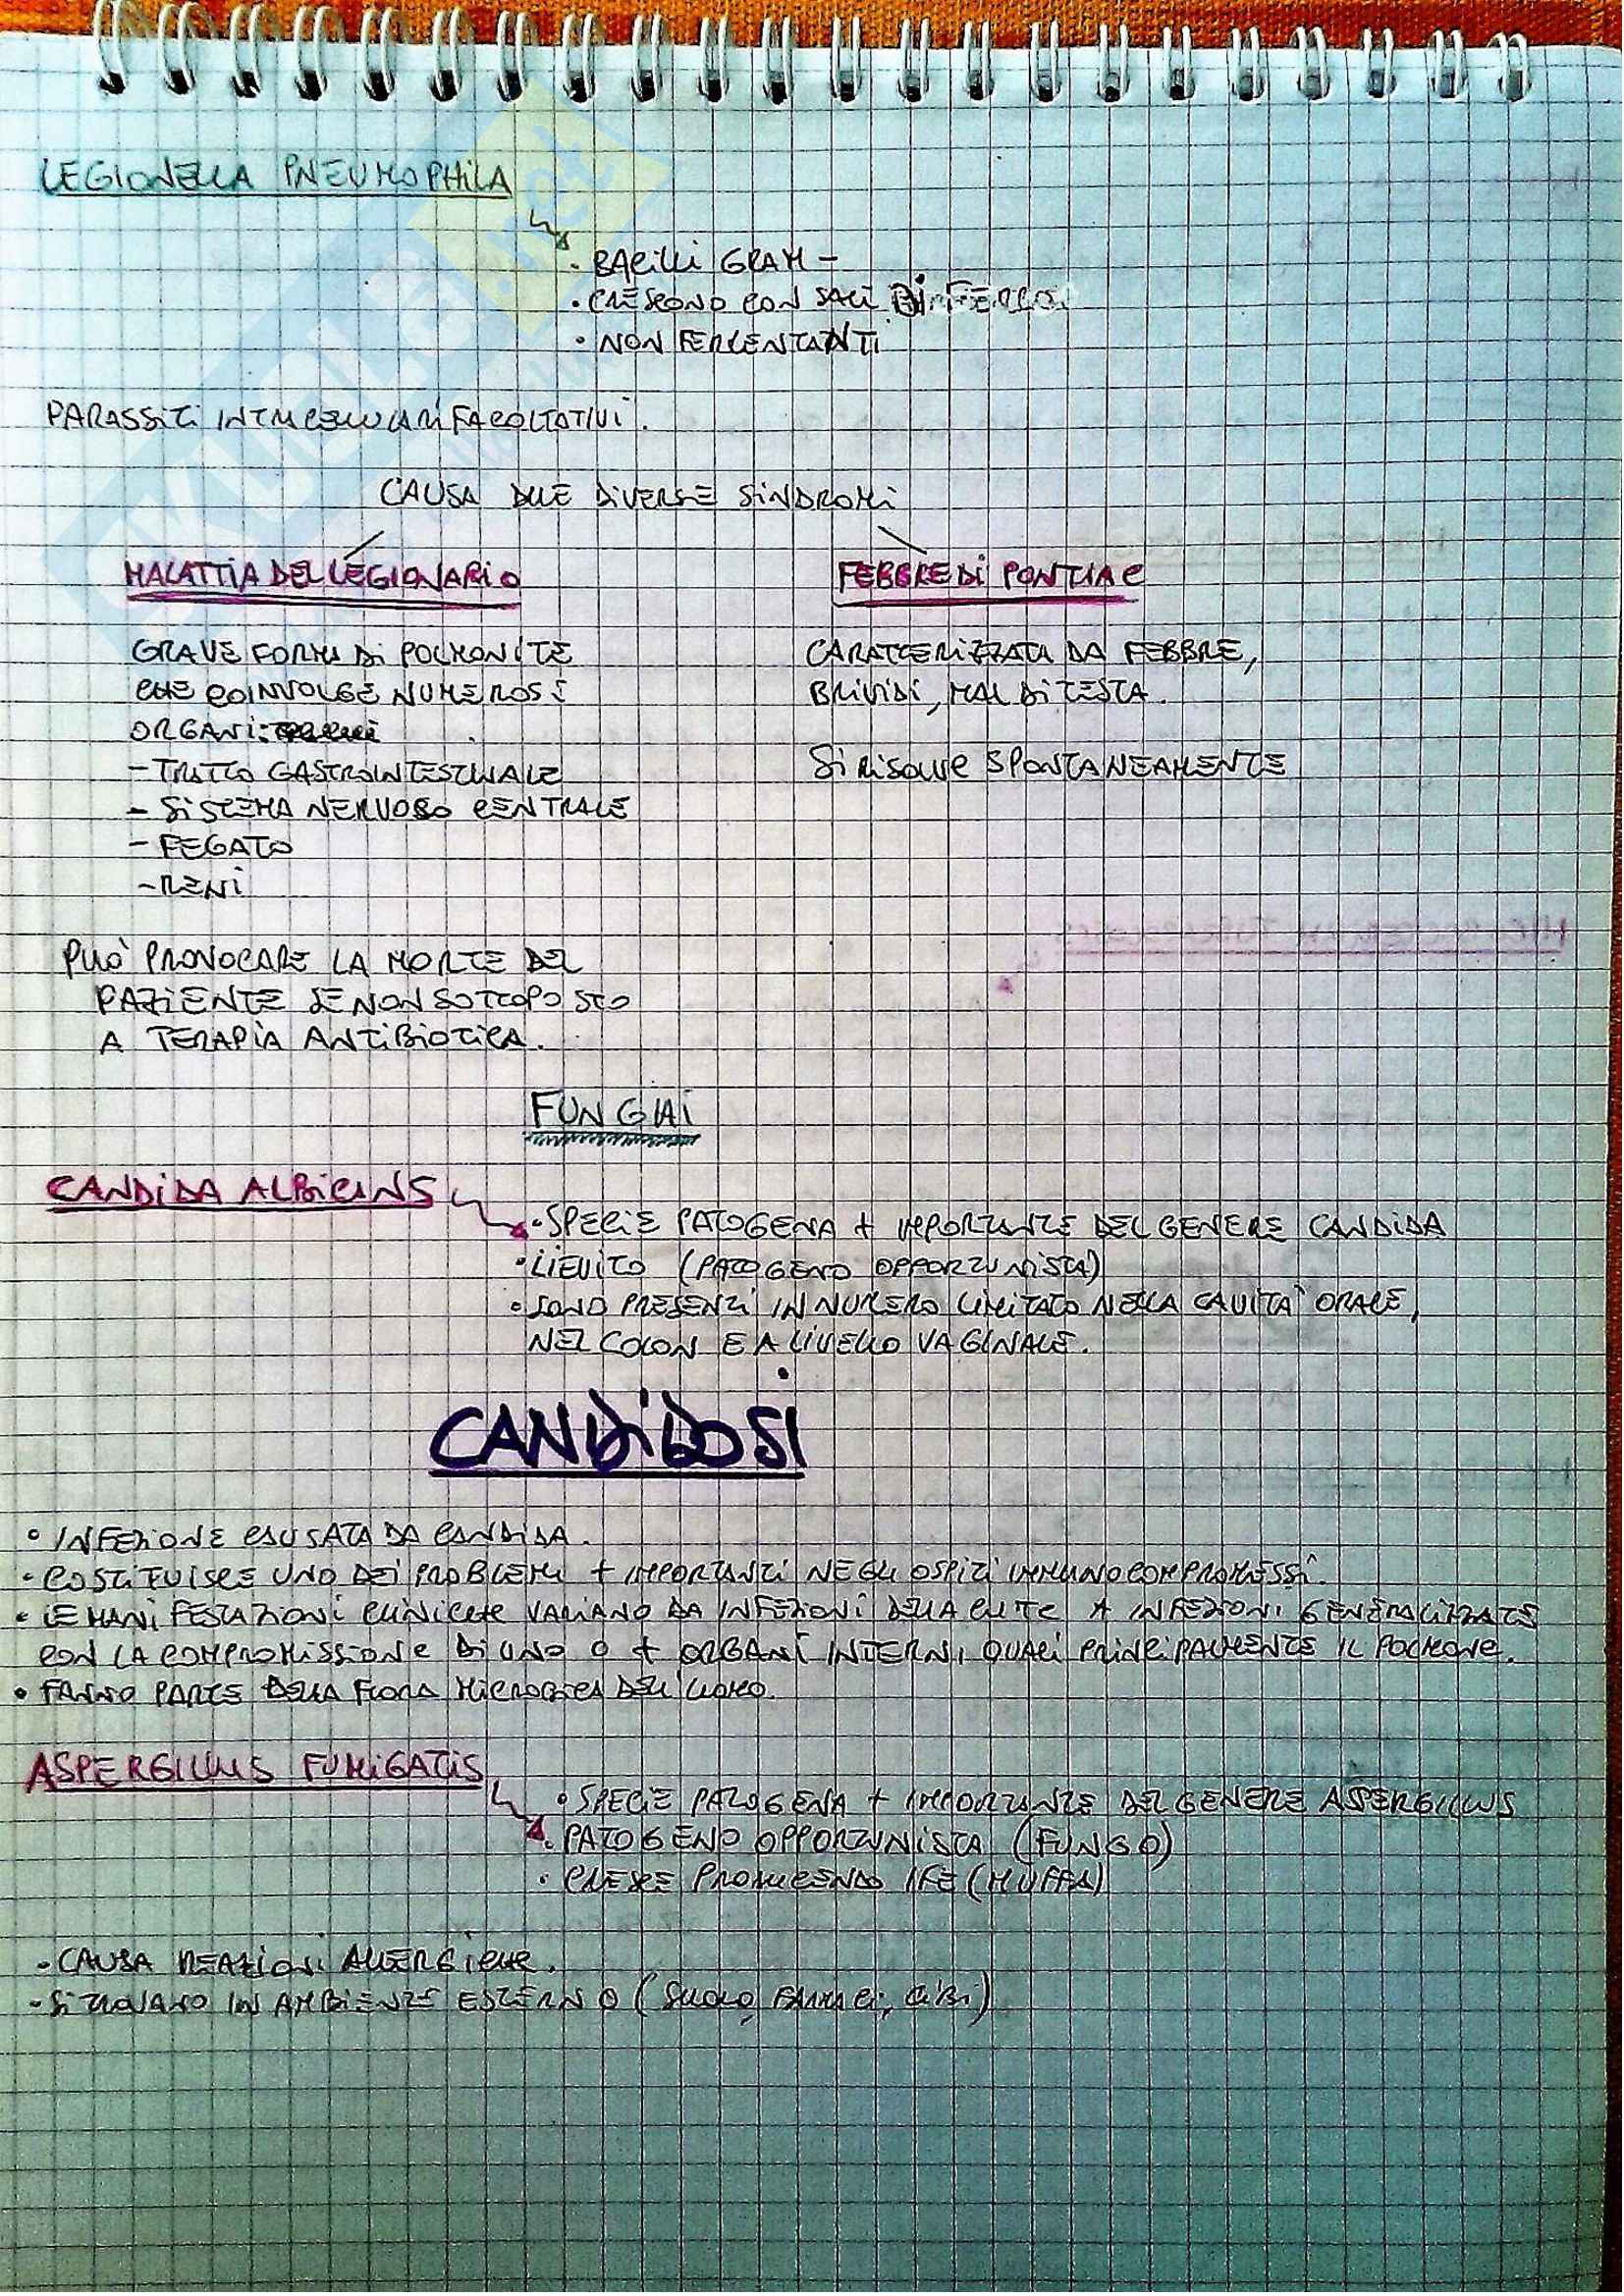 LEGIONELLA PNEUMOPHILA
• BACILLI GRAM -
• CRESCONO CON SALI DI FERRO
• NON FERMENTANTI
PARASSITI INTRACELLULARI FACOLTATIVI.
CAUSA DUE DIVERSE SINDROMI
MALATTIA DEL LEGIONARIO
GRAVE FORMA DI POLMONITE
CHE COINVOLGE NUMEROSI
ORGANI:
- TRATTO GASTROINTESTINALE
- SISTEMA NERVOSO CENTRALE
- FEGATO
- RENI
PUÒ PROVOCARE LA MORTE DEL
PAZIENTE SE NON SOTTOPOSTO
A TERAPIA ANTIBIOTICA.
FEBBRE DI PONTIAC
CARATTERIZZATA DA FEBBRE,
BRIVIDI, MAL DI TESTA.
SI RISOLVE SPONTANEAMENTE
FUNGHI
CANDIDA ALBICANS
• SPECIE PATOGENA + IMPORTANTE DEL GENERE CANDIDA
• LIEVITO (PATOGENO OPPORTUNISTA)
• SONO PRESENTI IN NUMERO LIMITATO NELLA CAVITÀ ORALE,
NEL COLON E A LIVELLO VAGINALE.
CANDIDOSI
• INFEZIONE CAUSATA DA CANDIDA.
• COSTITUISCE UNO DEI PROBLEMI + IMPORTANTI NEGLI OSPITI IMMUNOCOMPROMESSI.
• LE MANIFESTAZIONI CLINICHE VARIANO DA INFEZIONI DELLA CUTE A INFEZIONI GENERALIZZATE
CON LA COMPROMISSIONE DI UNO O + ORGANI INTERNI, QUALI PRINCIPALMENTE IL POLMONE.
• FANNO PARTE DELLA FLORA MICROBICA DELL'UOMO.
ASPERGILLUS FUMIGATIS
• SPECIE PATOGENA + IMPORTANTE DEL GENERE ASPERGILLUS
• PATOGENO OPPORTUNISTA (FUNGO)
• CRESCE PRODUCENDO IFE (MUFFA)
• CAUSA REAZIONI ALLERGICHE.
• SI TROVANO IN AMBIENTE ESTERNO (SUOLO, FARMACI, CIBI)